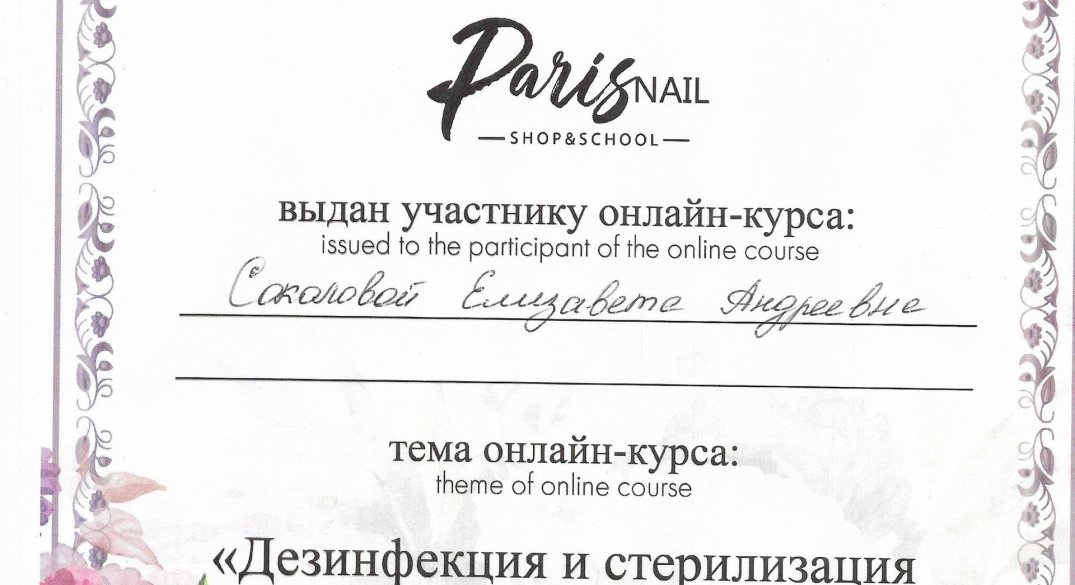 Paris NAIL
SHOP&SCHOOL
выдан участнику онлайн-курса:
issued to the participant of the online course
Соколовой Елизавете Андреевне
тема онлайн-курса:
theme of online course
«Дезинфекция и стерилизация